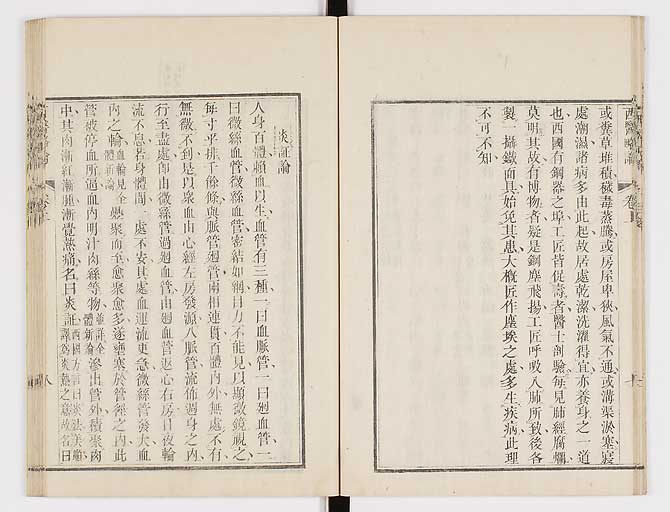 或糞草堆積穢毒蒸騰或房屋卑狹風氣不通或溝渠淤塞
處潮濕諸病多由此起故居處乾潔洗濯得宜亦養身之一道
也西國有鋼器之埠工匠皆促壽者醫士剖驗每見肺經腐爛
莫明其故有博物者疑是鋼塵飛揚工匠呼吸入肺所致後各
製一攝鐵面具始免其患大概匠作塵埃之處多生疾病此理
不可不知
炎証論
人身百體賴血以生血管有三種一曰血脈管一曰廻血管一
曰微絲血管微絲血管密結如網目力不能見以顯微鏡視之
每寸平排千餘條與脈管廻管兩相連貫百體內外無處不有
無微不到是以衆血由心經左房發源入脈管流佈週身之內
行至盡處即由微絲管過廻血管由廻血管返心右房日夜輪
流不息若身體間一處不安其處血運流更急微絲管發大血
內之輪血輪見全體新論變聚而至愈聚愈多遂壅塞於管徑之內此
管被停血所逼血內明汁肉絲等物並詳全體新論滲出管外積聚肉
中其肉漸紅漸腫漸覺蒸痛名曰炎証
西醫略論
卷